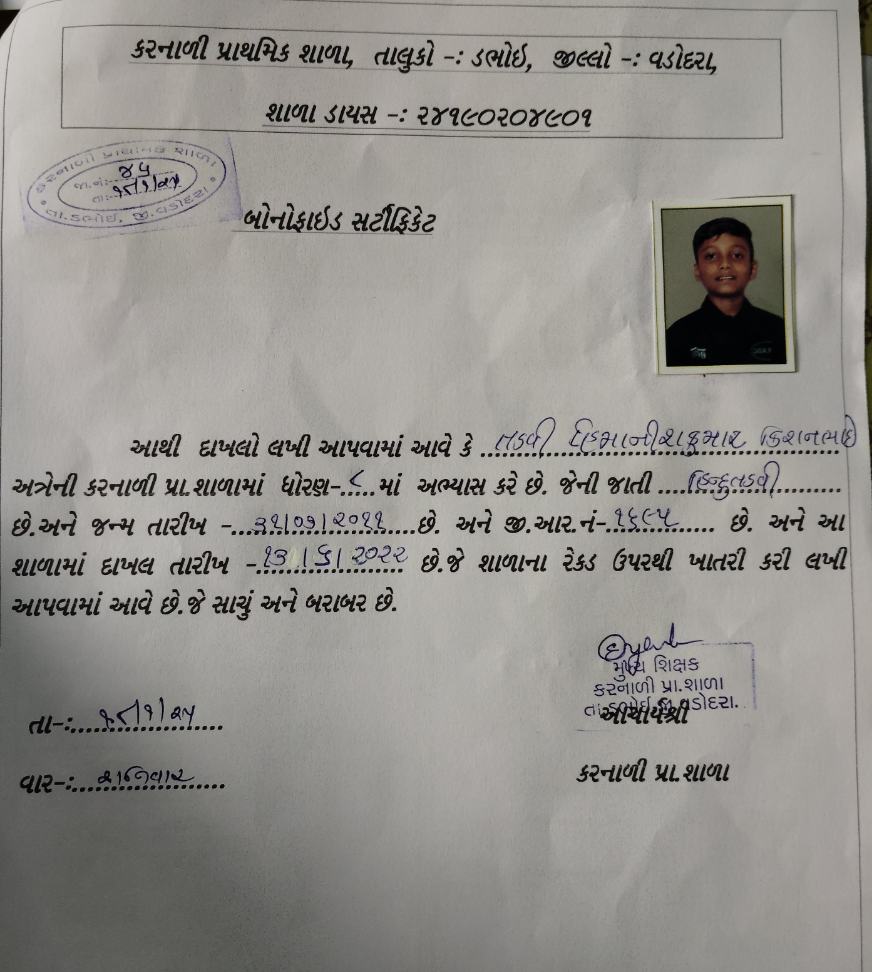 કરનાળી પ્રાથમિક શાળા, તાલુકો -: ડભોઇ, જીલ્લો -: વડોદરા,
શાળા ડાયસ -: ૨૪૧૯૦૨૦૪૯૦૧
કરનાળી પ્રાથમિક શાળા
જા.નં:- ૪૫
તા:-
તા.ડભોઇ, જી.વડોદરા
બોનોફાઇડ સર્ટીફિકેટ
આથી દાખલો લખી આપવામાં આવે કે તડવી કિશનભાઇ
અત્રેની કરનાળી પ્રા.શાળામાં ધોરણ-૮ માં અભ્યાસ કરે છે. જેની જાતી હિન્દુતડવી
છે.અને જન્મ તારીખ -૩૧/૦૭/૨૦૧૧ છે. અને જી.આર.નં-૧૬૯૫ છે. અને આ
શાળામાં દાખલ તારીખ -૧૩/૬/૨૦૨૨ છે.જે શાળાના રેકડ ઉપરથી ખાતરી કરી લખી
આપવામાં આવે છે.જે સાચું અને બરાબર છે.
મુખ્ય શિક્ષક
કરનાળી પ્રા.શાળા
તા.ડભોઇ.જી.વડોદરા.
આચાર્યશ્રી
તા-:
વાર-: શનિવાર
કરનાળી પ્રા.શાળા